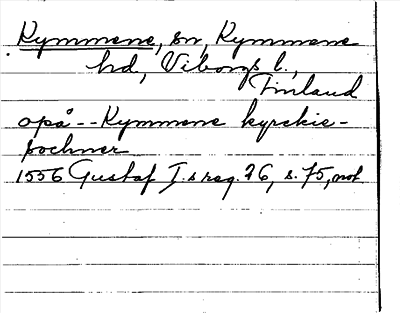 Kymmene, sn, Kymmene
hd, Viborgs l.,
Finland
opå -- Kymmene kyrckie-
sochner
1556 Gustaf I.s reg. 26, s. 75, or.